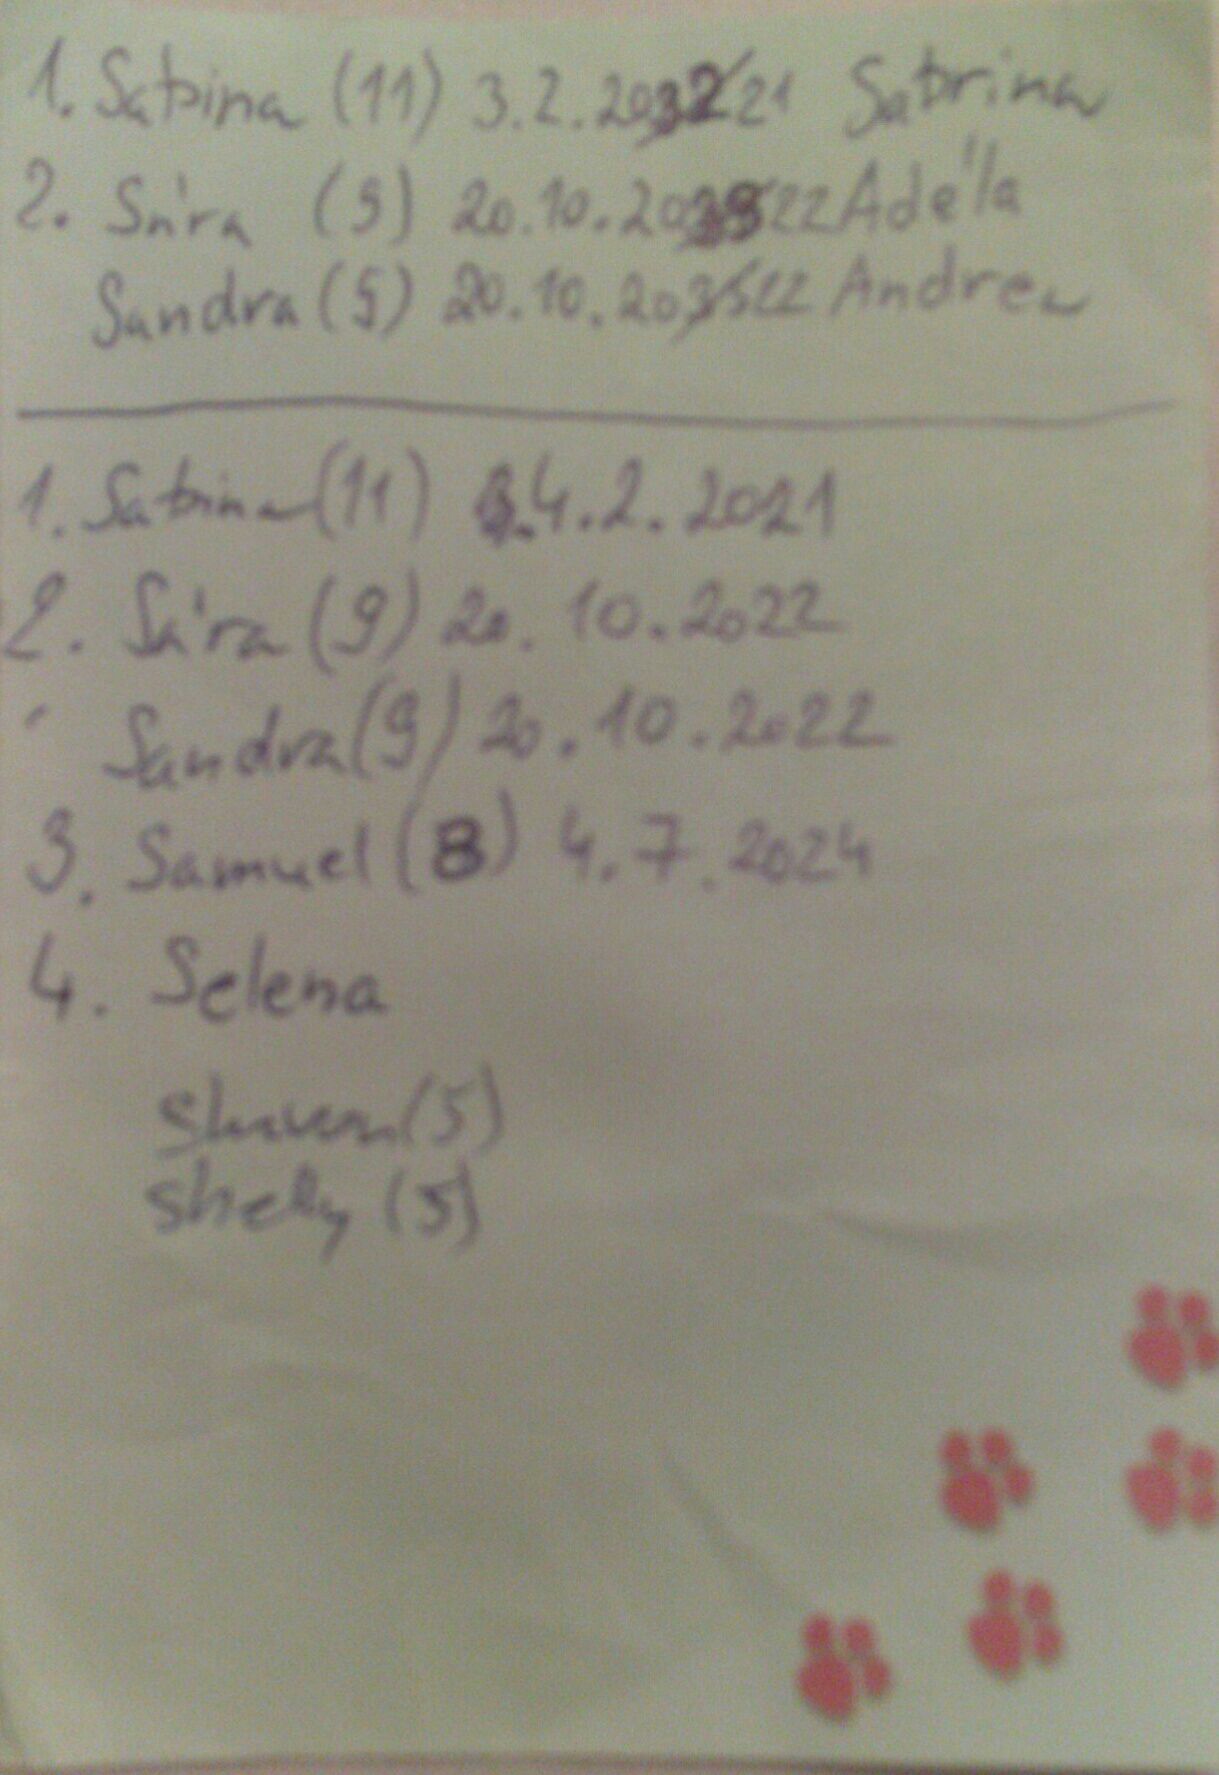 1. Sabrina (11) 3.2.2021 Sabrina
2. Sára (9) 20.10.2022 Adéla
Sandra (9) 20.10.2022 Andrea
1. Sabrina (11) 4.2.2021
2. Sára (9) 20.10.2022
Sandra (9) 20.10.2022
3. Samuel (8) 4.7.2024
4. Selena
(5)
shelly (5)